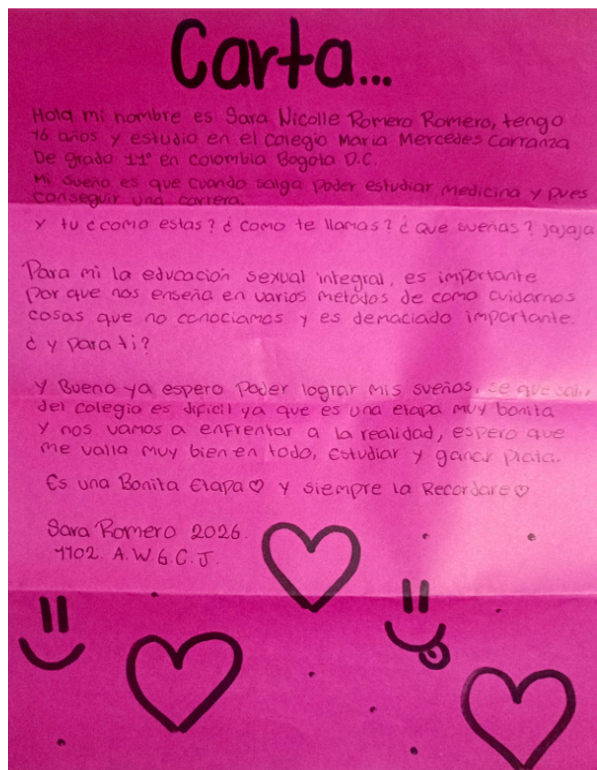 Carta...
Hola mi nombre es Sara Nicolle Romero Romero, tengo
16 años y estudio en el colegio Maria Mercedes Carranza
De grado 11° en colombia Bogota D.C.
Mi sueño es que cuando salga poder estudiar medicina y pues
conseguir una carrera.
y tu ¿como estas? ¿como te llamas? ¿Que sueñas? jajaja
Para mi la educación sexual integral, es importante
Por que nos enseña en varios metodos de como cuidarnos
cosas que no conociamos y es demaciado importante.
¿y para ti?
y Bueno ya espero Poder lograr mis sueños, se que salir
del colegio es dificil ya que es una etapa muy bonita
y nos vamos a enfrentar a la realidad, espero que
me valla muy bien en todo, Estudiar y ganar plata.
Es una Bonita Etapa♡ y siempre la Recordare♡
Sara Romero 2026.
1102. A.W.G.C.J.